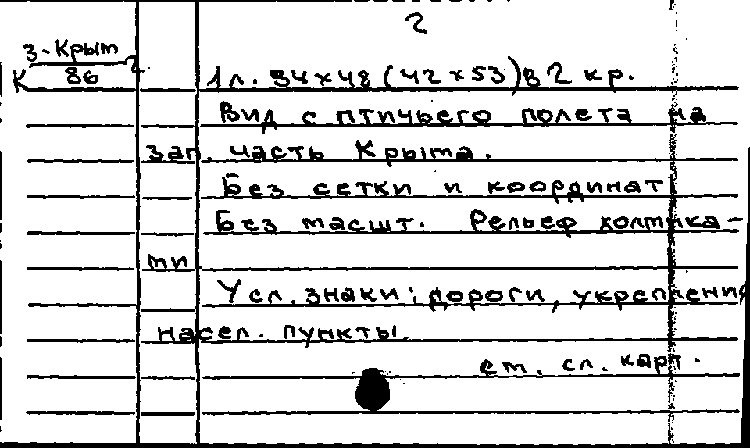 2
З-Крым
К 86 2
1л. 34х48 (42х53) в 2 кр.
Вид с птичьего полета на
зап. часть Крыма.
Без сетки и координат
Без масшт. Рельеф холмика-
ми
Усл. знаки: дороги, укреплени
насел. пункты.
см. сл. карт.